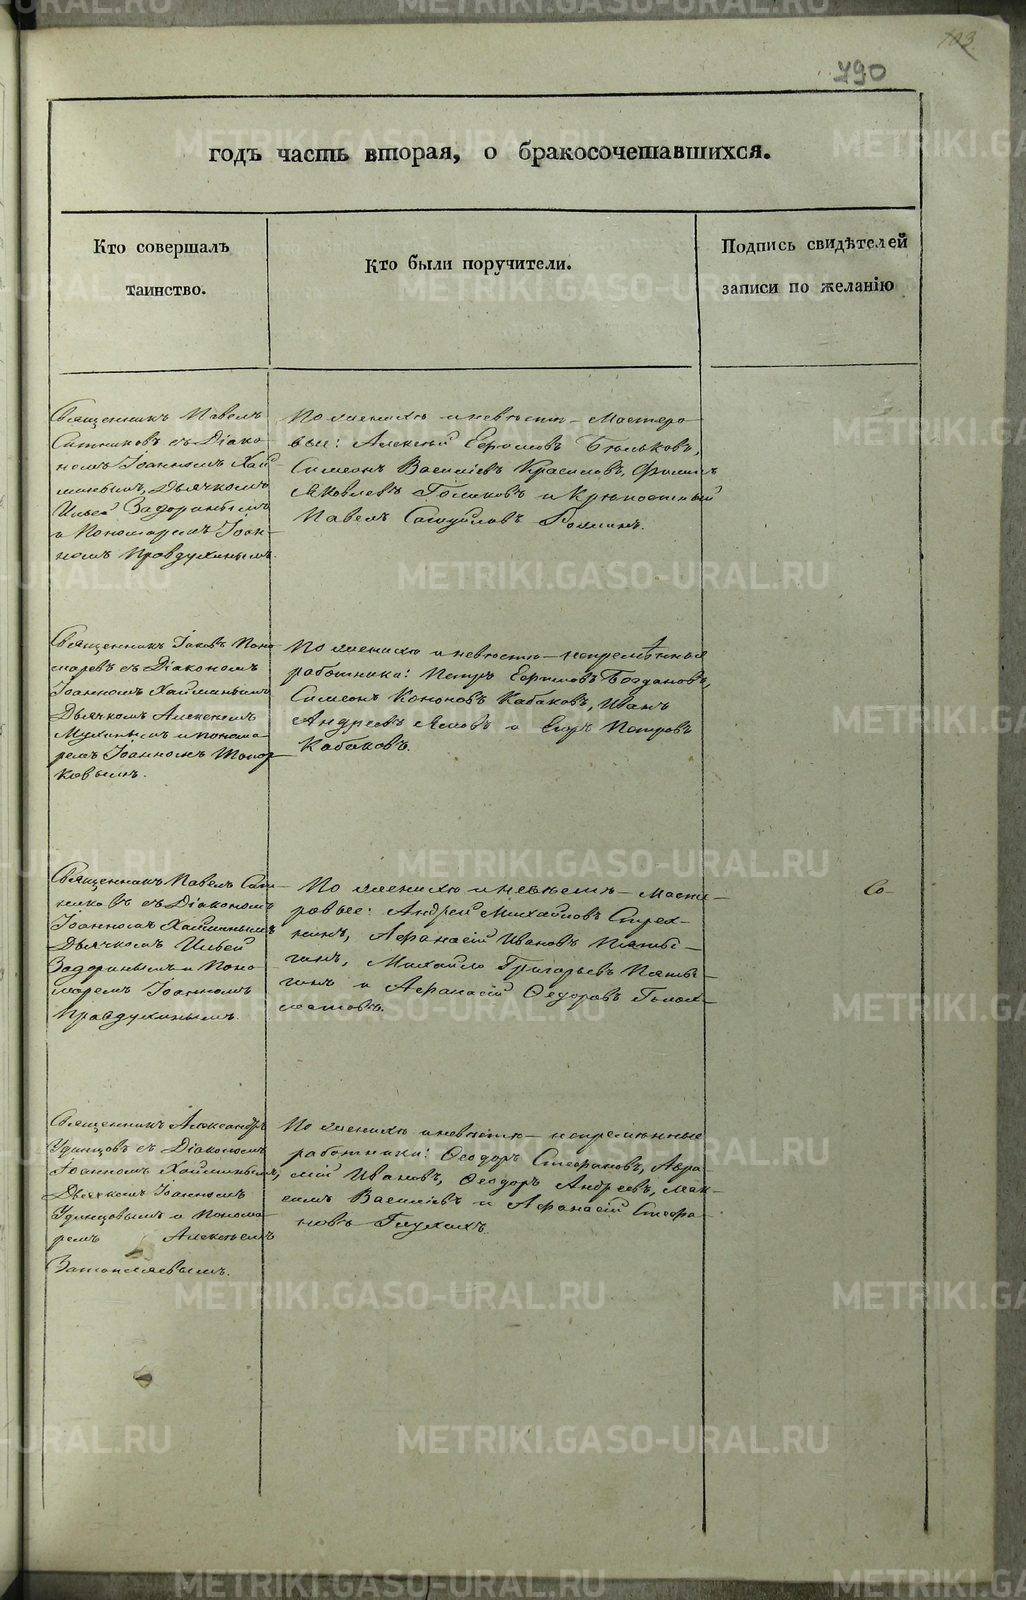 103
790
годъ часть вторая, о бракосочетавшихся.
Кто совершалъ
таинство.
Кто были поручители.
Подпись свидѣтелей
записи по желанію
Священникъ Павелъ
съ Діако-
номъ Іоанномъ Хай-
минымъ, Дьячкомъ
Ильей Задоринымъ
и Пономаремъ Іоан-
номъ Правдухинымъ.
По женихѣ и невѣстѣ – Мастеро-
вые: Алексѣй Ефремовъ
Симеонъ Василіевъ Красиловъ,
Яковлевъ Голиковъ и Крѣпостный
Павелъ Самуйловъ
Священникъ Іаковъ Поно-
маревъ съ Діакономъ
Іоанномъ Хайминымъ,
Дьячкомъ Алексѣемъ
Мухинымъ и понома-
ремъ Іоанномъ Топор-
ковымъ.
По женихѣ и невѣстѣ – непремѣнныя
работники: Петръ Ефимовъ Богдановъ,
Симеонъ Кононовъ Кабаковъ, Иванъ
Андреевъ и Егоръ Петровъ
Кабаковъ.
Священникъ Павелъ
съ Діакономъ
Іоанномъ Хайминымъ
Дьячкомъ Ильей
Задоринымъ и Поно-
маремъ Іоанномъ
Правдухинымъ.
По женихѣ и невѣстѣ – Масте-
ровые: Андрей Михайловъ Стреж-
нинъ, Афанасій Ивановъ Пяты-
гинъ, Михайло Григорьевъ Пяты-
гинъ и Афанасій Ѳедоровъ
Со-
Священникъ Александръ
Удинцовъ съ Діакономъ
Іоанномъ Хайминымъ,
Дьячкомъ Іоанномъ
Удинцовымъ и Понома-
ремъ Алексѣемъ
Затопляевымъ.
По женихѣ и невѣстѣ – непремѣнные
работники: Ѳеодоръ Стефановъ, Авра-
мій Ивановъ, Ѳеодоръ Андреевъ, Мак-
симъ Василіевъ и Афанасій Стефа-
новъ Глухихъ.
METRIKI.GASO-URAL.RU